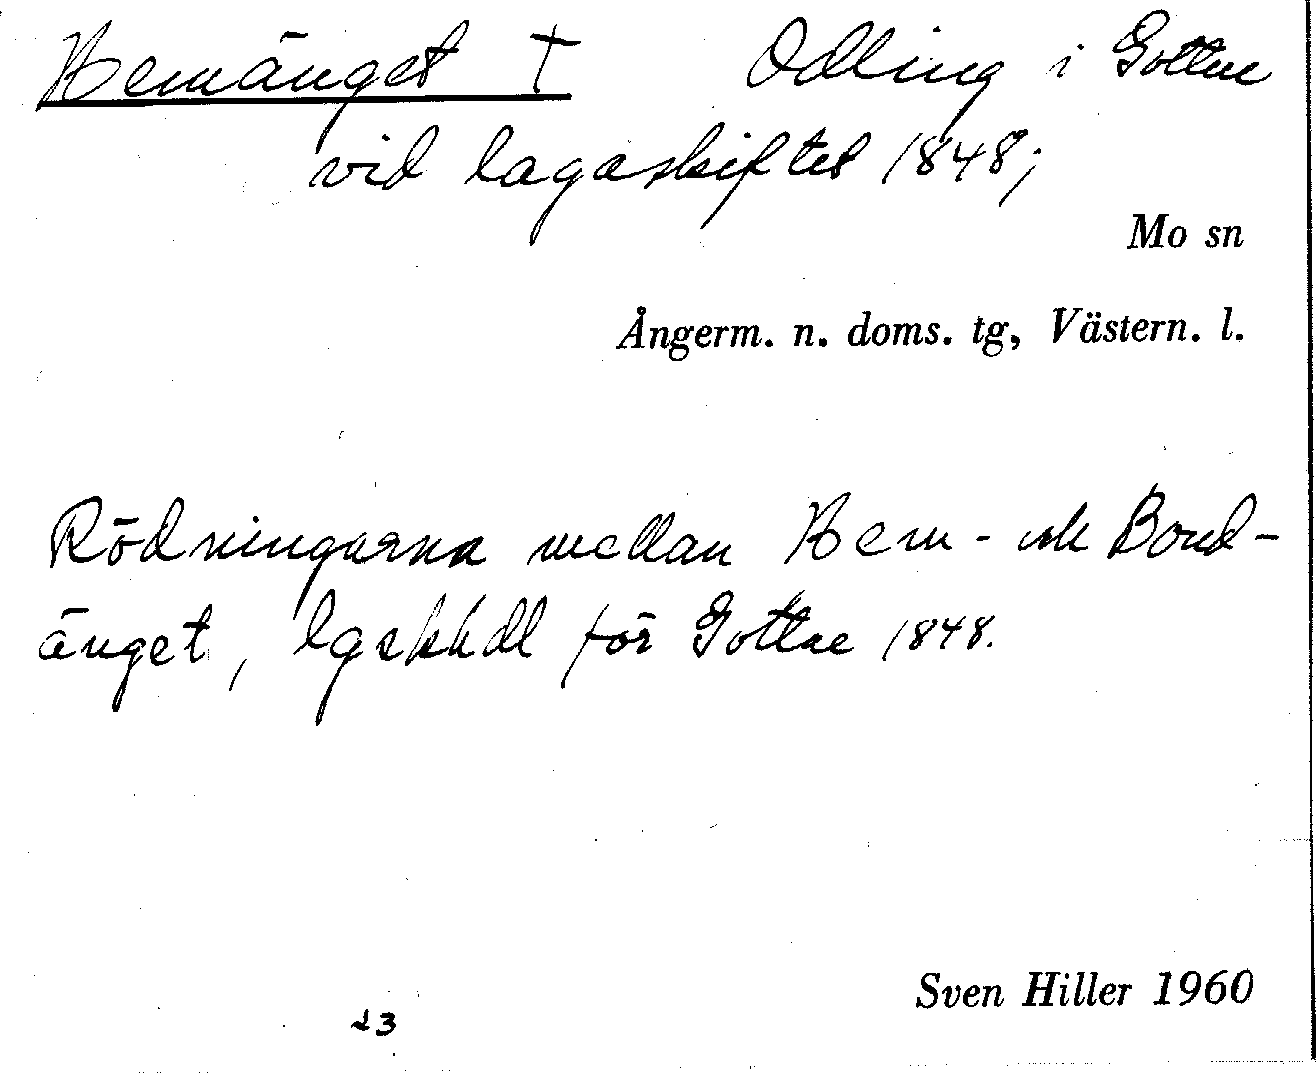 Hemänget † Odling i Gottne
vid lagaskiftet 1848;
Mo sn
Ångerm. n. doms. tg, Västern. l.
Rödningarna mellan Hem- och Bond-
änget, lgskhdl för Gottne 1848.
Sven Hiller 1960
23